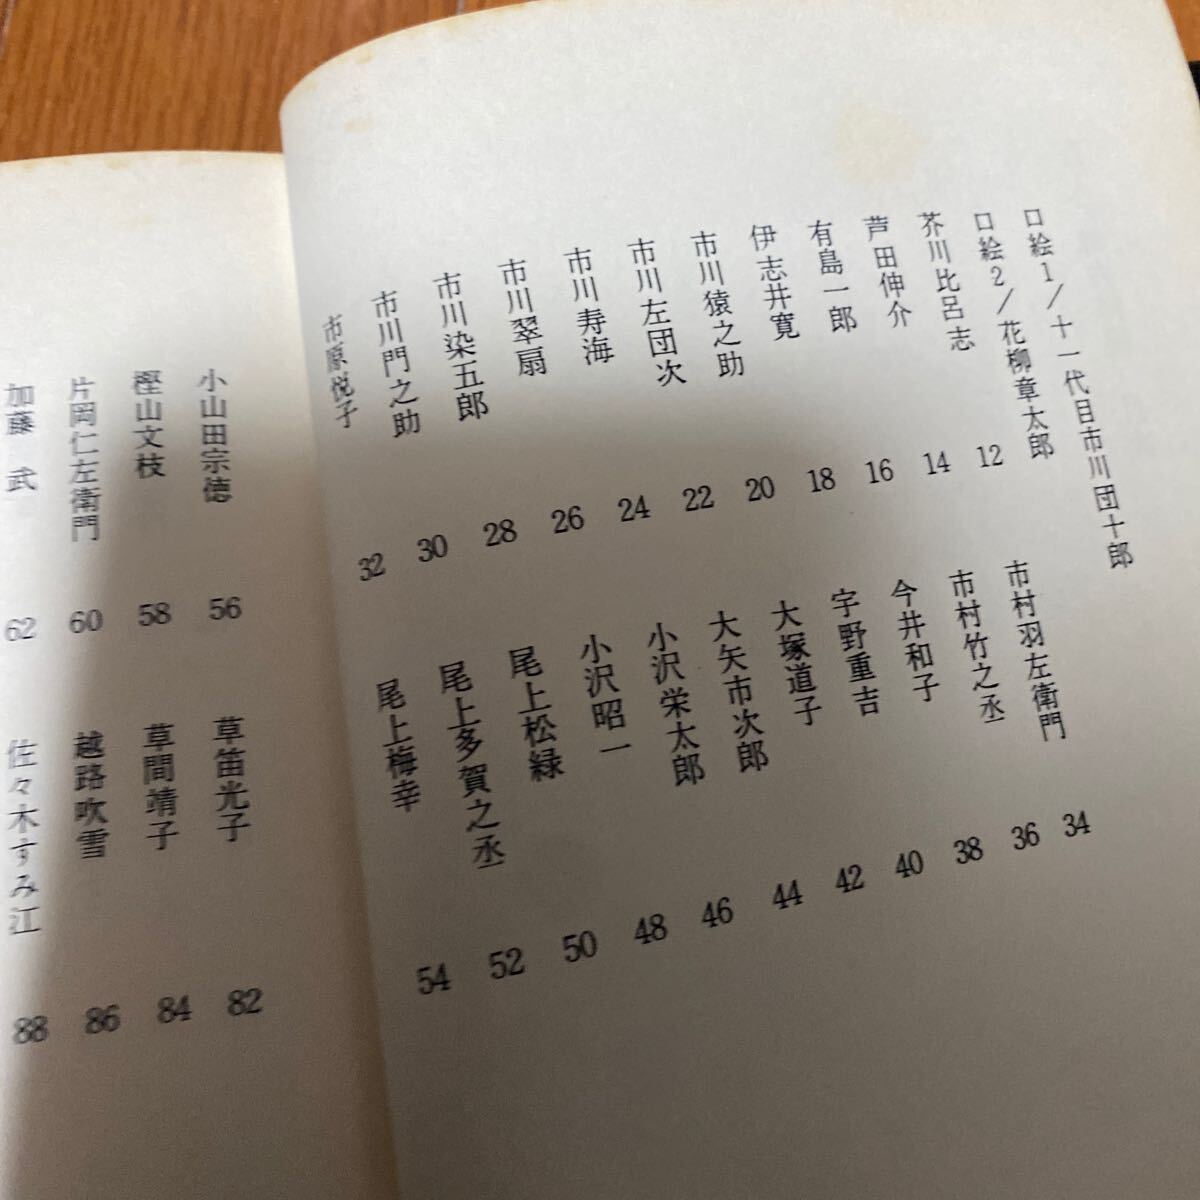 口絵1/十一代目市川団十郎
口絵2/花柳章太郎
芥川比呂志 12
芦田伸介 14
有島一郎 16
伊志井寛 18
市川猿之助 20
市川左団次 22
市川寿海 24
市川翠扇 26
市川染五郎 28
市川門之助 30
市原悦子 32
市村羽左衛門 34
市村竹之丞 36
今井和子 38
宇野重吉 40
大塚道子 42
大矢市次郎 44
小沢栄太郎 46
小沢昭一 48
尾上松緑 50
尾上多賀之丞 52
尾上梅幸 54
小山田宗徳 56
樫山文枝 58
片岡仁左衛門 60
加藤 武 62
草笛光子 82
草間靖子 84
越路吹雪 86
佐々木すみ江 88